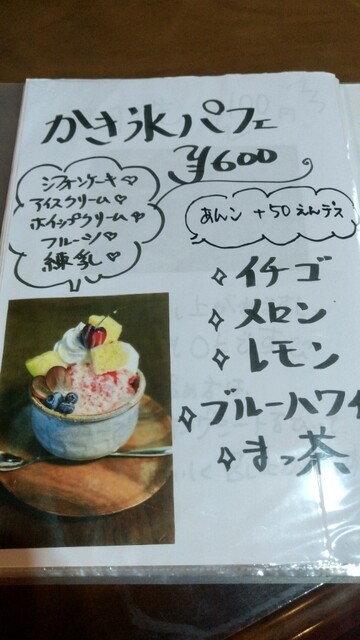 かき氷パフェ
¥600
シフォンケーキ♡
アイスクリーム♡
ホイップクリーム♡
フルーツ♡
練乳♡
あんこ +50えんデス
✧イチゴ
✧メロン
✧レモン
✧ブルーハワイ
✧まっ茶